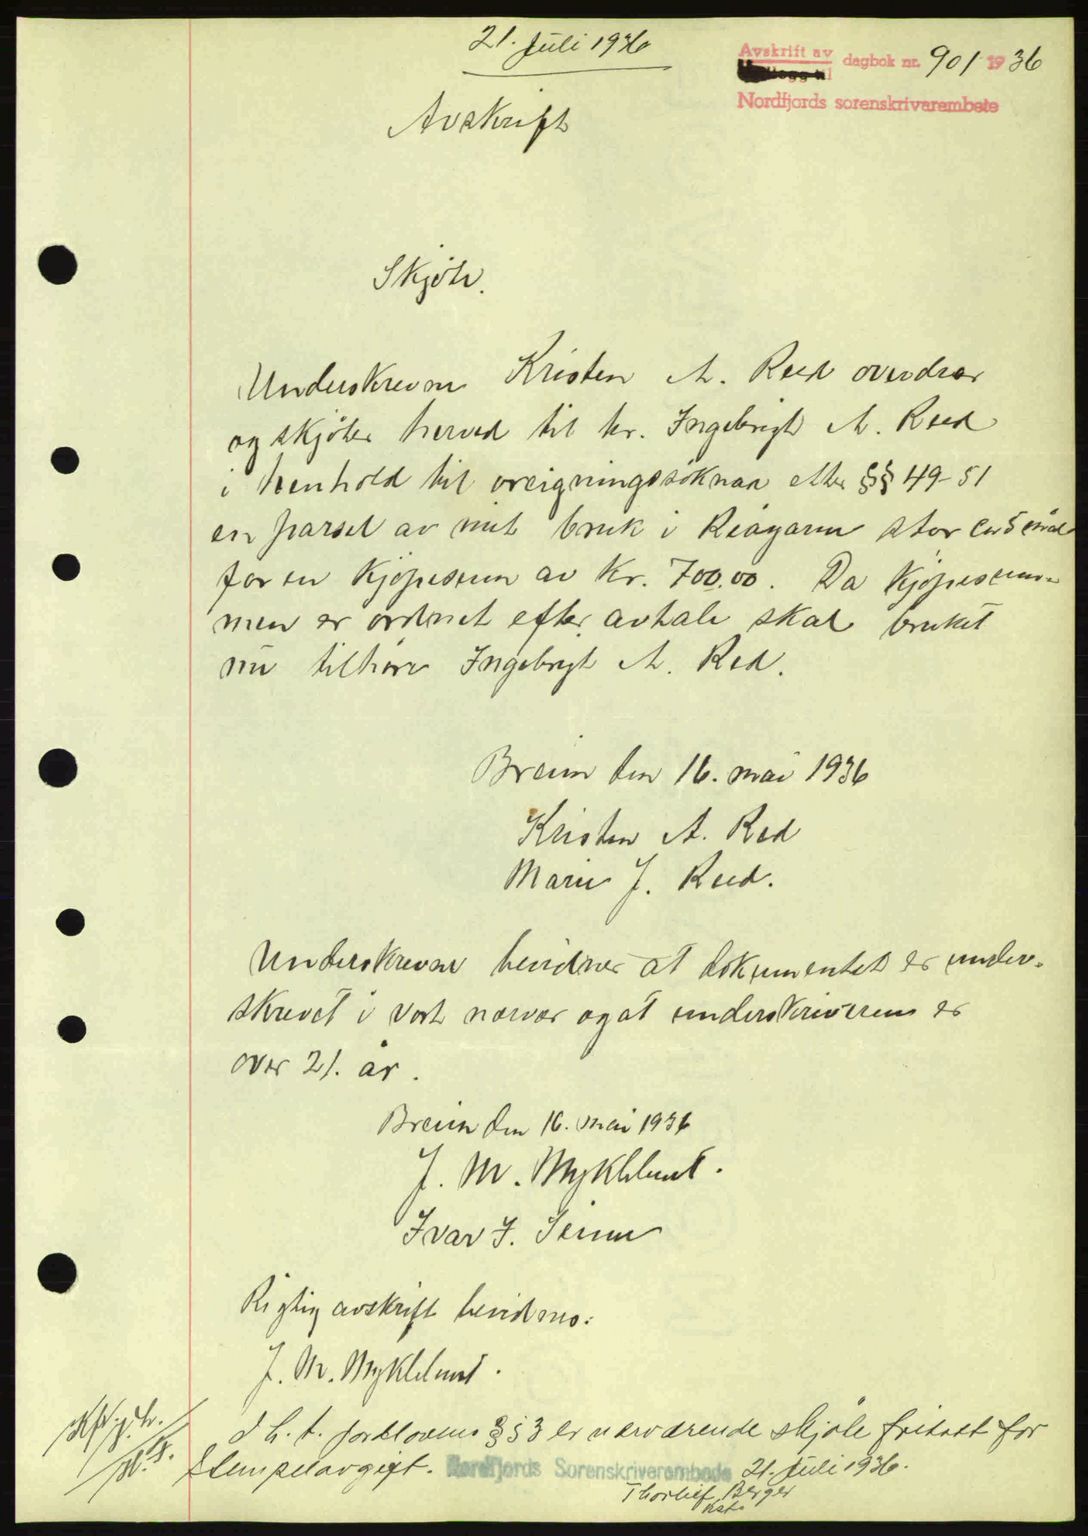 21. Juli 1936
Avskrift av
dagbok nr. 901 1936
Nordfjords sorenskriverembete
Avskrift
Skjöte.
Underskrevne Kristen A. Reed overdrar
og skjöter herved til hr. Ingebrigt A. Reed
i henhold til oreigningssöknan etter §§ 49-51
en parsel av mit bruk i Reagarun stor ca 5 mål
for en kjöpesum av Kr. 700.00. Da kjöpesum-
men er ordnet efter avtale skal bruket
nu tilhöre Ingebrigt A. Reed.
Breim den 16. mai 1936
Kristen A. Reed
Marie J. Reed.
Underskrevne bevidner at dokumentet er under-
skrevet i vort nærvær og at underskriverene er
over 21. år.
Breim den 16. mai 1936
J. M. Myklebust.
Ivar J. Seime
Rigtig avskrift bevidnes:
J. M. Myklebust.
I h. t. jordlovens § 53 er nærværende skjöte fritatt for
stempelavgift. Nordfjords Sorenskriverembede 21. juli 1936.
Thorleif Berger